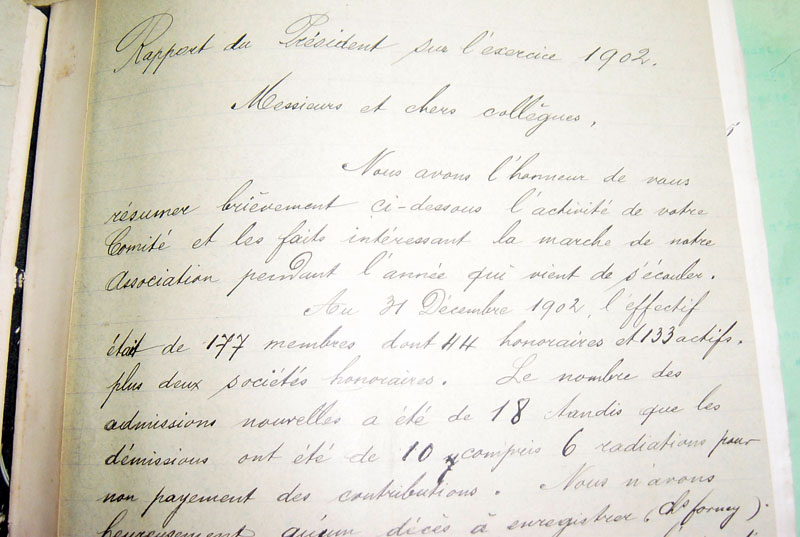 Rapport du Président sur l'exercice 1902.
Messieurs et chers collègues,
Nous avons l'honneur de vous
résumer brièvement ci-dessous l'activité de votre
Comité et les faits intéressant la marche de notre
Association pendant l'année qui vient de s'écouler.
Au 31 Décembre 1902, l'effectif
était de 177 membres dont 44 honoraires et 133 actifs.
plus deux sociétés honoraires. Le nombre des
admissions nouvelles a été de 18 tandis que les
démissions ont été de 10 y compris 6 radiations pour
non payement des contributions. Nous n'avons
heureusement qu'un décès à enregistrer (